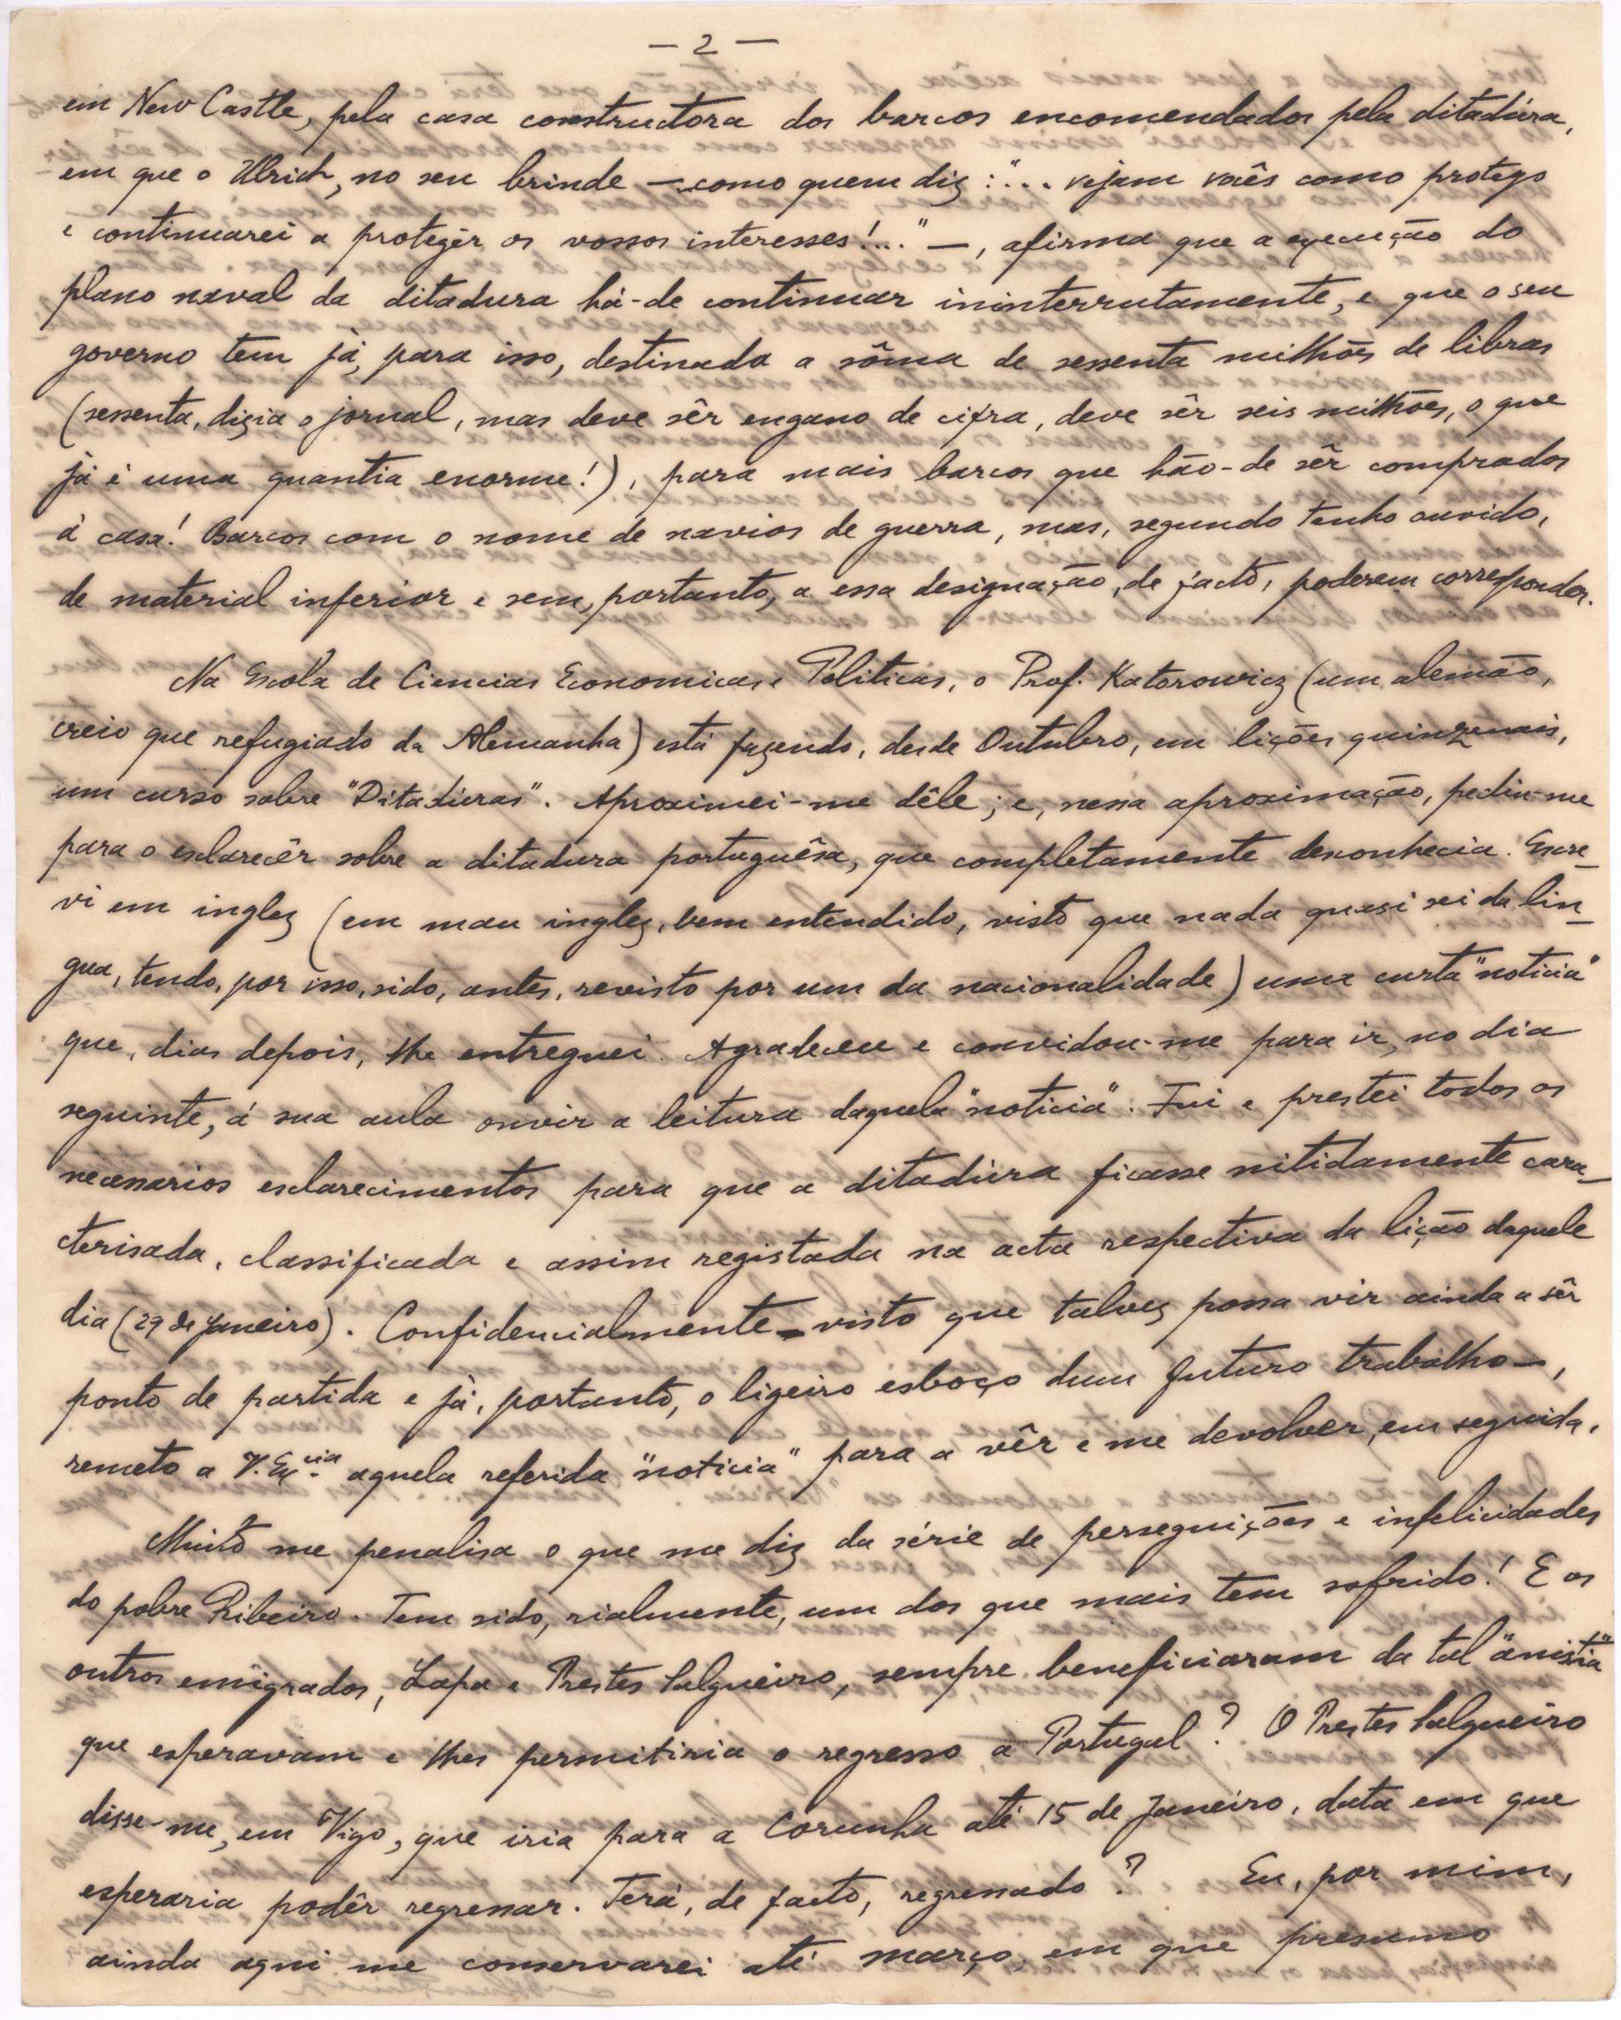 — 2 —
em New Castle, pela casa constructora dos barcos encomendados pela ditadúra,
em que o Ulrich, no seu brinde — como quem diz: "... vejam vocês como protego
e continuarei a protegêr os vossos interesses!..." —, afirma que a execução do
plano naval da ditadura há-de continuar ininterrutamente, e que o seu
governo tem já, para isso, destinada a sôma de sessenta milhões de libras
(sessenta, dizia o jornal, mas deve sêr engano de cifra, deve sêr seis milhões, o que
já é uma quantia enorme!), para mais barcos que hão-de sêr comprados
á casa! Barcos com o nome de navios de guerra, mas, segundo tenho ouvido,
de material inferior e sem, portanto, a essa designação, de facto, poderem corresponder.
Na Escola de Ciencias Economicas e Politicas, o Prof. Katorowicz (um alemão,
creio que refugiado da Alemanha) está fazendo, desde Outubro, em lições quinzenais,
um curso sobre "Ditaduras". Aproximei-me dêle; e, nessa aproximação, pediu-me
para o esclarecêr sobre a ditadura portuguêsa, que completamente desconhecia. Escre-
vi em inglez (em mau inglez, bem entendido, visto que nada quasi sei da lin-
gua, tendo, por isso, sido, antes, revisto por um da nacionalidade) uma curta "noticia"
que, dias depois, lhe entreguei. Agradeceu e convidou-me para ir, no dia
seguinte, á sua aula ouvir a leitura daquela "noticia". Fui e prestei todos os
necessarios esclarecimentos para que a ditadúra ficasse nitidamente cara-
cterisada, classificada e assim registada na acta respectiva da lição daquele
dia (29 de Janeiro). Confidencialmente — visto que talvez possa vir ainda a sêr
ponto de partida e já, portanto, o ligeiro esboço dum futuro trabalho —,
remeto a V. Excia aquela referida "noticia" para a vêr e me devolver, em seguida.
Muito me penalisa o que me diz da série de perseguições e infelicidades
do pobre Ribeiro. Tem sido, rialmente, um dos que mais tem sofrido! E os
outros emigrados, Lapa e Prestes Salgueiro, sempre beneficiaram da tal "amistia"
que esperavam e lhes permitiria o regresso a Portugal? O Prestes Salgueiro
disse-me, em Vigo, que iria para a Corunha até 15 de Janeiro, data em que
esperaria podêr regressar. Terá, de facto, regressado? Eu, por mim,
ainda aqui me conservarei até março, em que presumo